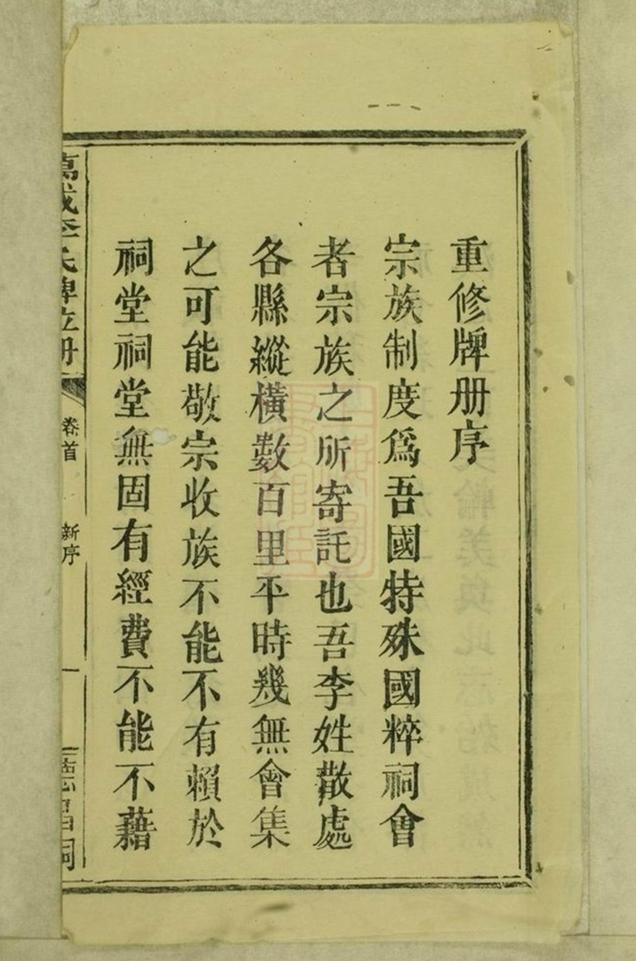 重修牌册序
宗族制度爲吾國特殊國粹祠會
者宗族之所寄託也吾李姓散處
各縣縱橫數百里平時幾無會集
之可能敬宗收族不能不有賴於
祠堂祠堂無固有經費不能不藉
萬載李氏牌位册
卷首
新序
一